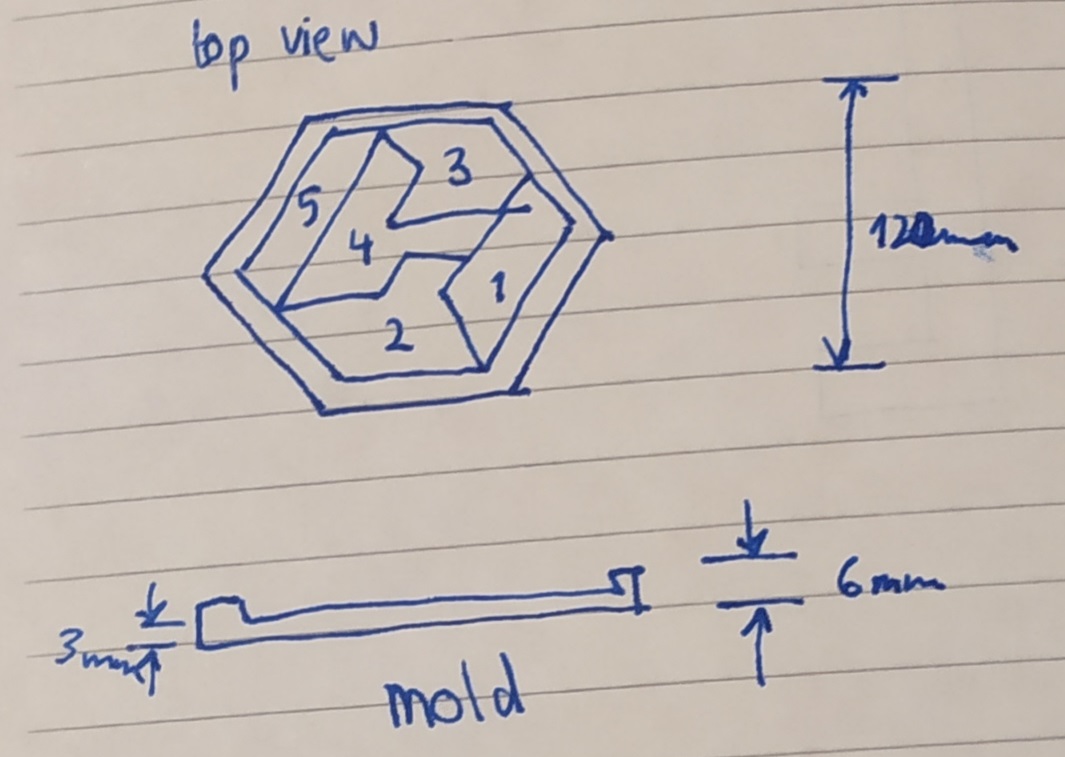 top view
3
5
4
1
2
120mm
6mm
3mm
mold